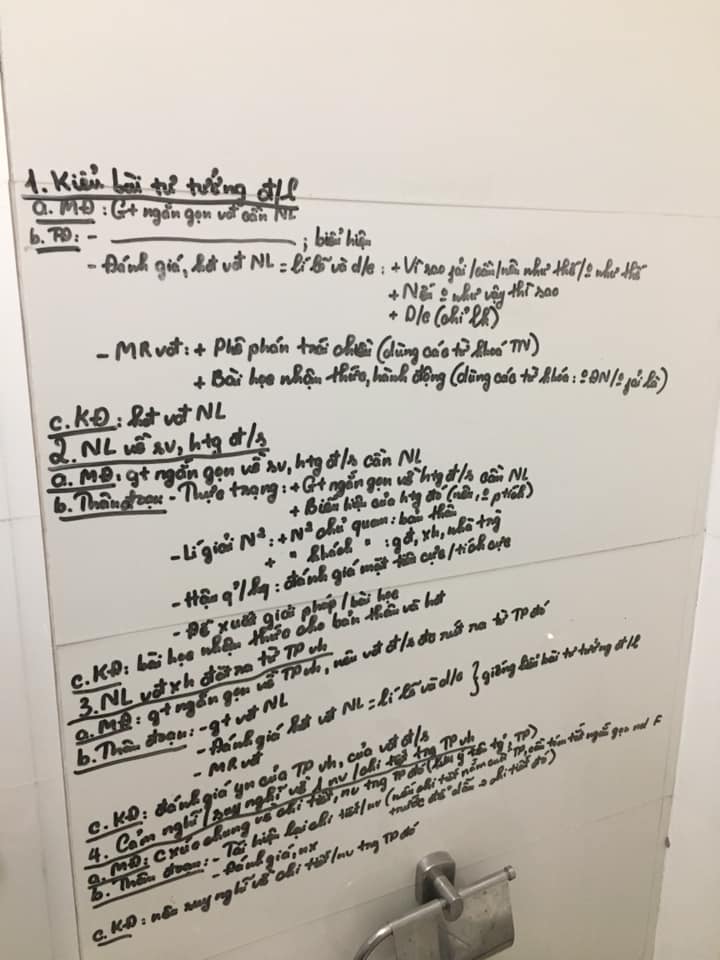 1. Kiểu bài tư tưởng đ/l
a. MĐ: Gt ngắn gọn vđ cần NL
b. TĐ: - ; biểu hiện
- Đánh giá, kđt vđ NL = lí lẽ và d/c: + Vì sao phải/cần/nên như thế/º như thế
+ Nếu º như vậy thì sao
+ D/c (chỉ
- MR vđ: + Phê phán trái chiều (dùng các từ khoá TN)
+ Bài học nhận thức, hành động (dùng các từ khóa: º ĐN/º phải là)
c. KĐ: kđt vđ NL
2. NL về sv, htg đ/s
a. MĐ: gt ngắn gọn về sv, htg đ/s cần NL
b. Thân đoạn - Thực trạng: + Gt ngắn gọn về htg đ/s cần NL
+ Biểu hiện của htg đó (nêu, º ptích)
- Lí giải N²: + N² chủ quan: bản thân
+ " khách " : gđ, xh, nhà trg
- Hậu q'/kq: đánh giá mặt tiêu cực/tích cực
- Đề xuất giải pháp/bài học
c. KĐ: bài học nhận thức cho bản thân và
3. NL vđ xh đặt ra từ TP vh
a. MĐ: gt ngắn gọn về TP vh, nêu vđ đ/s đc rút ra từ TP đó
b. Thân đoạn: - gt vđ NL
- Đánh giá kđt vđ NL = lí lẽ và d/c } giống kiểu bài tư tưởng đ/l
- MR vđ
c. KĐ: đánh giá yn của TP vh, của vđ đ/s
4. Cảm nghĩ/suy nghĩ về 1 nv/chi tiết trg TP vh
a. MĐ: cxúc chung về chi tiết, nv trg TP đó tên tg, TP)
b. Thân đoạn: - Tái hiện lại chi tiết/nv (nếu chi tiết nằm cuối TP, cần tóm tắt ngắn gọn nd F
trước để dẫn → chi tiết đó)
- Đánh giá, nx
c. KĐ: nêu suy nghĩ về chi tiết/nv trg TP đó